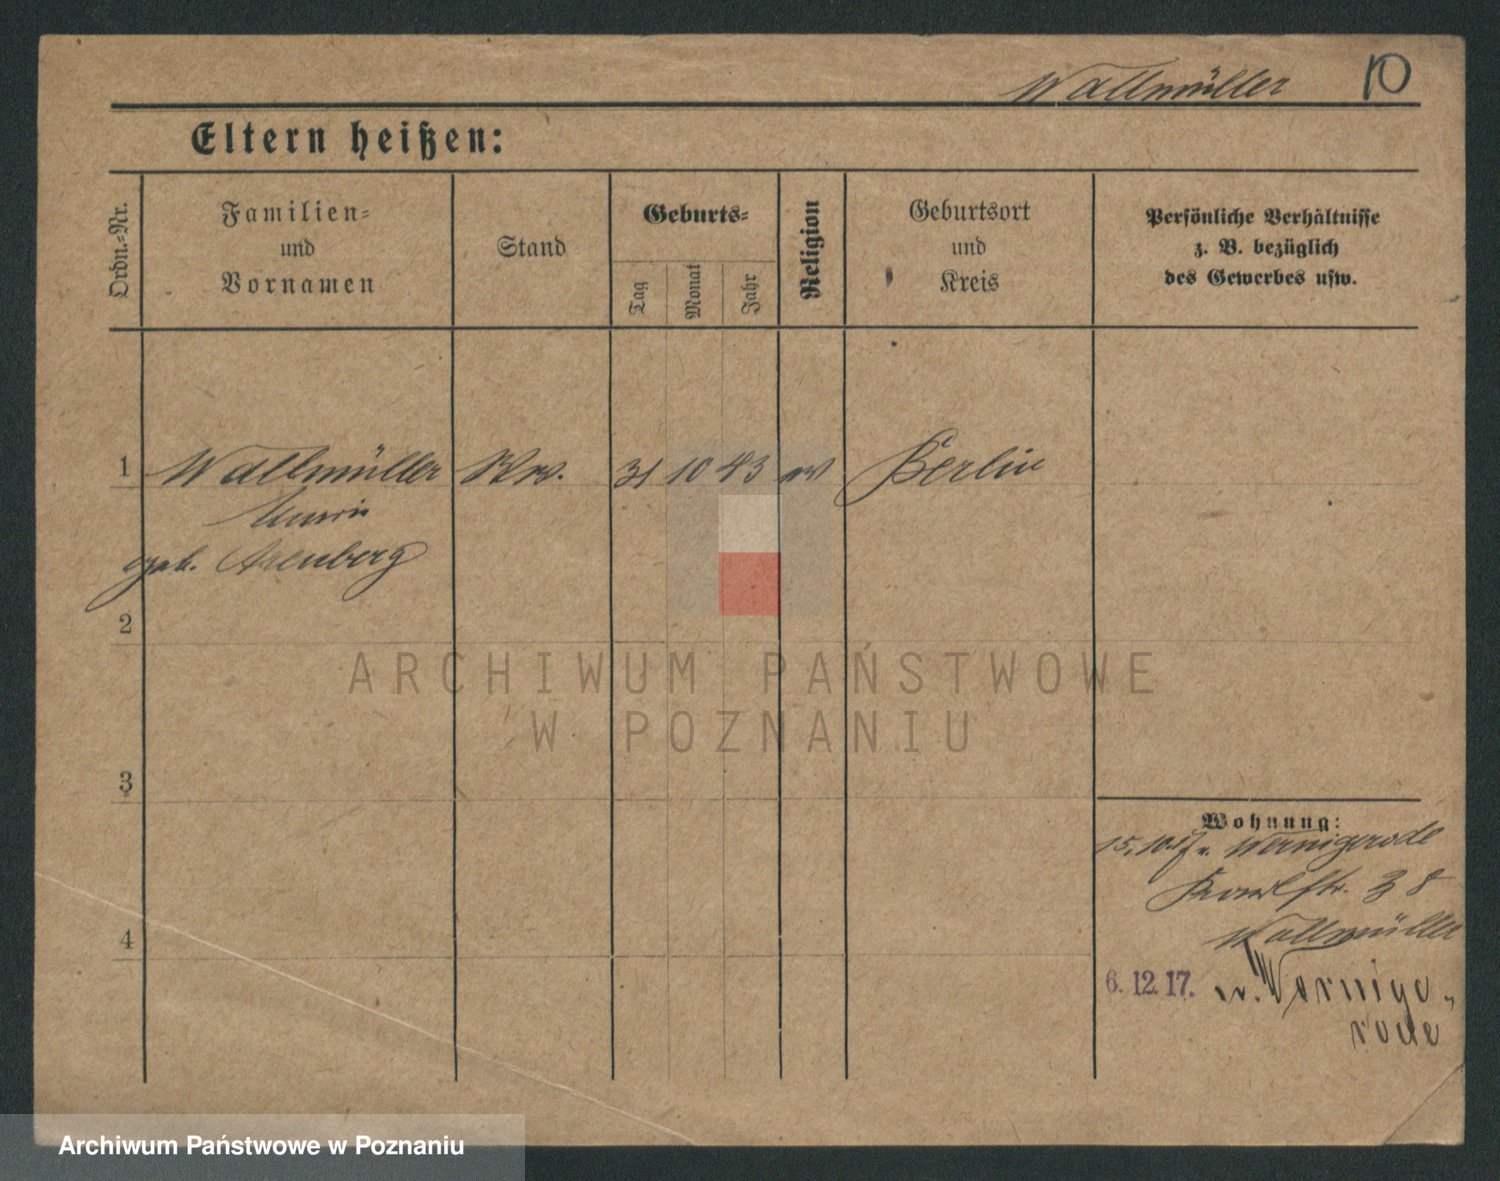 Wallmüller 10
Eltern heißen:
Ordn.-Nr.
Familien-
und
Vornamen
Stand
Geburts-
Tag
Monat
Jahr
Religion
Geburtsort
und
Kreis
Persönliche Verhältnisse
z. B. bezüglich
des Gewerbes usw.
1 Wallmüller Ww. 31 10 43 ev Berlin
geb. Arenberg
2
3
4
Wohnung:
15.10.17 n. Wernigerode
Wallmüller
6. 12. 17. n. Wernige-
rode
ARCHIWUM PAŃSTWOWE
W POZNANIU
Archiwum Państwowe w Poznaniu